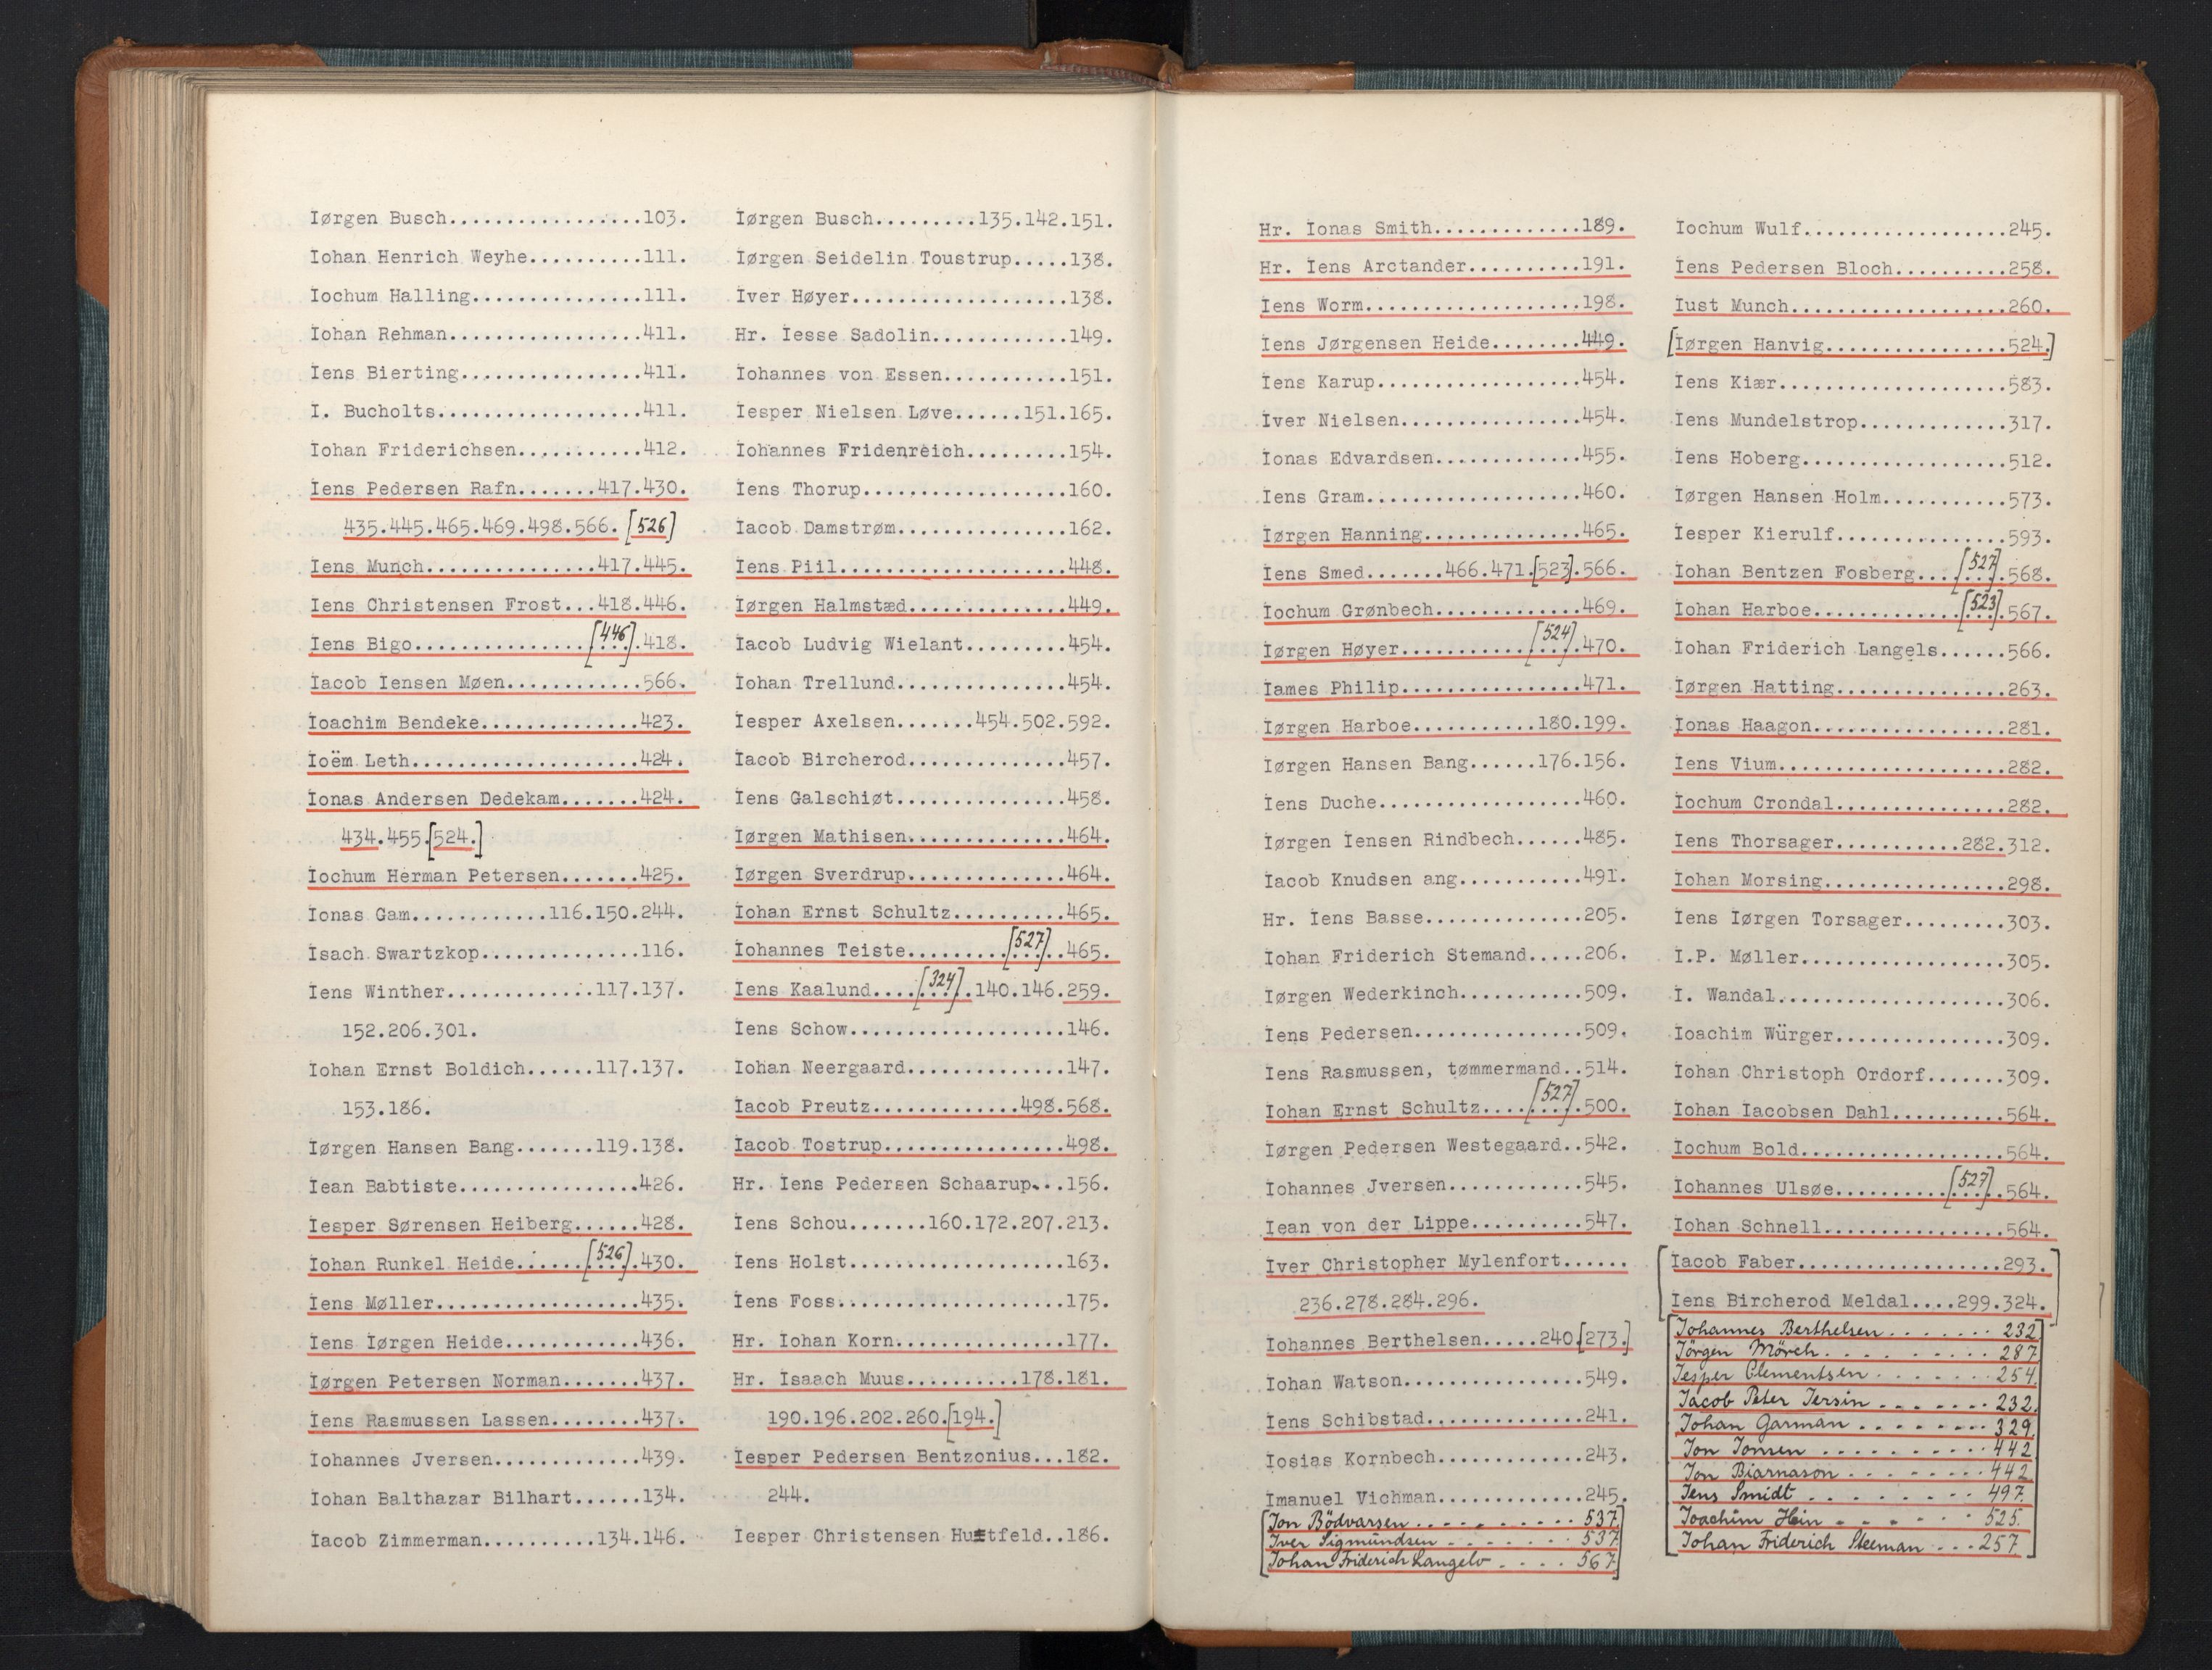 Iørgen Busch.................103.
Iohan Henrich Weyhe..........111.
Iochum Halling...............111.
Iohan Rehman.................411.
Iens Bierting................411.
I. Bucholts..................411.
Iohan Friderichsen...........412.
Iens Pedersen Rafn.......417.430.
435.445.465.469.498.566. [526]
Iens Munch...............417.445.
Iens Christensen Frost...418.446.
Iens Bigo...............[446].418.
Iacob Iensen Møen............566.
Ioachim Bendeke..............423.
Ioëm Leth....................424.
Ionas Andersen Dedekam.......424.
434.455.[524.]
Iochum Herman Petersen.......425.
Ionas Gam............116.150.244.
Isach Swartzkop..............116.
Iens Winther.............117.137.
152.206.301.
Iohan Ernst Boldich......117.137.
153.186.
Iørgen Hansen Bang.......119.138.
Iean Babtiste................426.
Iesper Sørensen Heiberg......428.
Iohan Runkel Heide......[526].430.
Iens Møller..................435.
Iens Iørgen Heide............436.
Iørgen Petersen Norman.......437.
Iens Rasmussen Lassen........437.
Iohannes Jversen.............439.
Iohan Balthazar Bilhart......134.
Iacob Zimmerman..........134.146.
Iørgen Busch.........135.142.151.
Iørgen Seidelin Toustrup.....138.
Iver Høyer...................138.
Hr. Iesse Sadolin............149.
Iohannes von Essen...........151.
Iesper Nielsen Løve......151.165.
Iohannes Fridenreich.........154.
Iens Thorup..................160.
Iacob Damstrøm...............162.
Iens Piil....................448.
Iørgen Halmstæd..............449.
Iacob Ludvig Wielant.........454.
Iohan Trellund...............454.
Iesper Axelsen.......454.502.592.
Iacob Bircherod..............457.
Iens Galschiøt...............458.
Iørgen Mathisen..............464.
Iørgen Sverdrup..............464.
Iohan Ernst Schultz..........465.
Iohannes Teiste.........[527]..465.
Iens Kaalund....[324].140.146.259.
Iens Schow...................146.
Iohan Neergaard..............147.
Iacob Preutz.............498.568.
Iacob Tostrup................498.
Hr. Iens Pedersen Schaarup...156.
Iens Schou.......160.172.207.213.
Iens Holst...................163.
Iens Foss....................175.
Hr. Iohan Korn...............177.
Hr. Isaach Muus..........178.181.
190.196.202.260.[194.]
Iesper Pedersen Bentzonius...182.
244.
Iesper Christensen Huitfeld..186.
Hr. Ionas Smith.............189.
Hr. Iens Arctander..........191.
Iens Worm...................198.
Iens Jørgensen Heide........449.
Iens Karup..................454.
Iver Nielsen................454.
Ionas Edvardsen.............455.
Iens Gram...................460.
Iørgen Hanning..............465.
Iens Smed.......466.471.[523].566.
Iochum Grønbech.............469.
Iørgen Høyer...........[524].470.
Iames Philip................471.
Iørgen Harboe...........180.199.
Iørgen Hansen Bang......176.156.
Iens Duche..................460.
Iørgen Iensen Rindbech......485.
Iacob Knudsen ang...........491.
Hr. Iens Basse..............205.
Iohan Friderich Stemand.....206.
Iørgen Wederkinch...........509.
Iens Pedersen...............509.
Iens Rasmussen, tømmermand..514.
Iohan Ernst Schultz....[527].500.
Iørgen Pedersen Westegaard..542.
Iohannes Jversen............545.
Iean von der Lippe..........547.
Iver Christopher Mylenfort......
236.278.284.296.
Iohannes Berthelsen.....240.[273.]
Iohan Watson................549.
Iens Schibstad..............241.
Iosias Kornbech.............243.
Imanuel Vichman.............245.
[Jon Bödvarsen.......... 537.
Iver Sigmundsen ........ 537.
Johan Friderich Langelo .... 567.]
Iochum Wulf..................245.
Iens Pedersen Bloch..........258.
Iust Munch...................260.
[Iørgen Hanvig................524.]
Iens Kiær....................583.
Iens Mundelstrop.............317.
Iens Hoberg..................512.
Iørgen Hansen Holm...........573.
Iesper Kierulf...............593.
Iohan Bentzen Fosberg...[527].568.
Iohan Harboe.............[523].567.
Iohan Friderich Langels......566.
Iørgen Hatting...............263.
Ionas Haagon.................281.
Iens Vium....................282.
Iochum Crondal...............282.
Iens Thorsager...........282.312.
Iohan Morsing................298.
Iens Iørgen Torsager.........303.
I.P. Møller..................305.
I. Wandal....................306.
Ioachim Würger...............309.
Iohan Christoph Ordorf.......309.
Iohan Iacobsen Dahl..........564.
Iochum Bold..................564.
Iohannes Ulsøe..........[527]..564.
Iohan Schnell................564.
[Iacob Faber..................293.
Iens Bircherod Meldal....299.324.]
[Johannes Berthelsen ....... 232.
Jörgen Mörch .......... 287.
Jesper Clementsen ....... 254.
Jacob Peter Jersin ....... 232.
Johan Garman ........ 329.
Jon Jonsen .......... 442.
Jon Biarnason ........ 442.
Jens Smidt ......... 497.
Joachim Hein ...... 525.
Johan Friderich Steeman ... 257.]